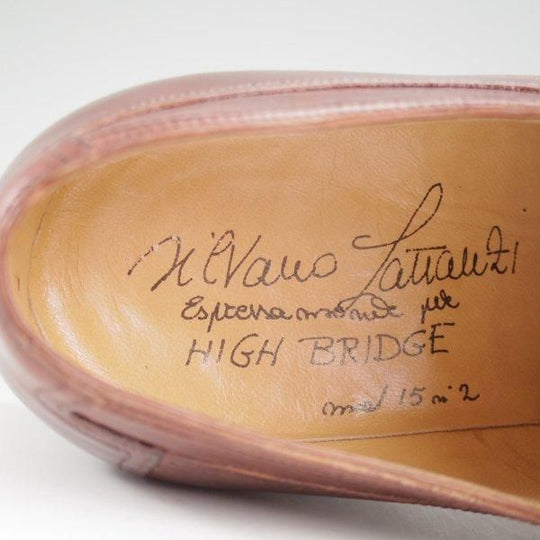 Silvano Lattanzi
Espressamente per
HIGH BRIDGE
mod 15 n 2